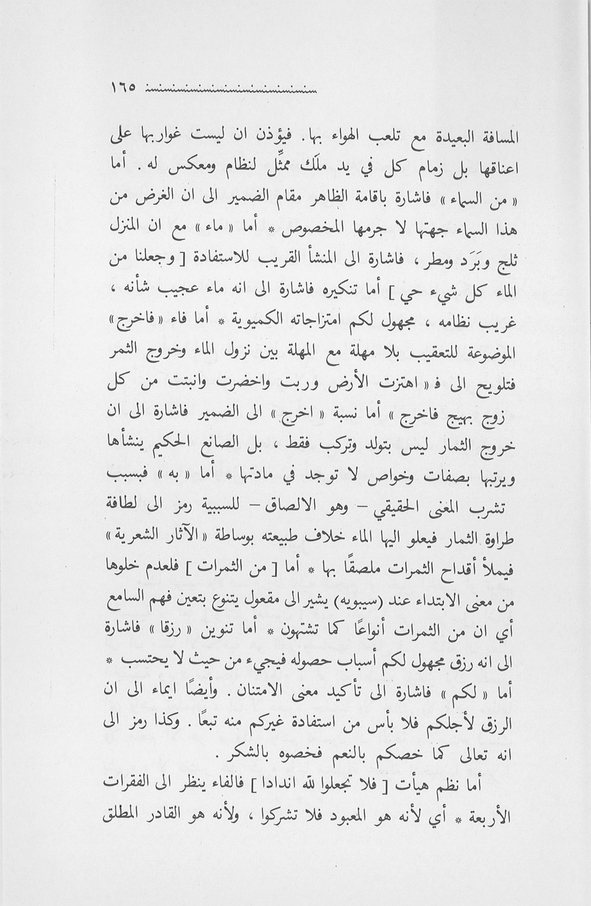 ١٦٥
المسافة البعيدة مع تلعب الهواء بها. فيؤذن ان ليست غواربها على
اعناقها بل زمام كل في يد ملَك ممثِّل لنظام ومعكس له. أما
« من السماء » فاشارة باقامة الظاهر مقام الضمير الى ان الغرض من
هذا السماء جهتها لا جرمها المخصوص * أما « ماء » مع ان المنزل
ثلج وبَرَد ومطر، فاشارة الى المنشأ القريب للاستفادة [ وجعلنا من
الماء كل شيء حي ] أما تنكيره فاشارة الى انه ماء عجيب شأنه ،
غريب نظامه ، مجهول لكم امتزاجاته الكميوية * أما فاء « فاخرج »
الموضوعة للتعقيب بلا مهلة مع المهلة بين نزول الماء وخروج الثمر
فتلويح الى فـ « اهتزت الأرض وربت واخضرت وانبتت من كل
زوج بهيج فاخرج » أما نسبة « اخرج » الى الضمير فاشارة الى ان
خروج الثمار ليس بتولد وتركب فقط ، بل الصانع الحكيم ينشأها
ويرتبها بصفات وخواص لا توجد في مادتها * أما « به » فبسبب
تشرب المعنى الحقيقي – وهو الالصاق – للسببية رمز الى لطافة
طراوة الثمار فيعلو اليها الماء خلاف طبيعته بوساطة « الآثار الشعرية »
فيملأ أقداح الثمرات ملصقًا بها * أما [ من الثمرات ] فلعدم خلوها
من معنى الابتداء عند (سيبويه) يشير الى مفعول يتنوع بتعين فهم السامع
أي ان من الثمرات أنواعًا كما تشتهون * أما تنوين « رزقا » فاشارة
الى انه رزق مجهول لكم أسباب حصوله فيجيء من حيث لا يحتسب *
أما « لكم » فاشارة الى تأكيد معنى الامتنان . وأيضًا ايماء الى ان
الرزق لأجلكم فلا بأس من استفادة غيركم منه تبعًا . وكذا رمز الى
انه تعالى كما خصكم بالنعم فخصوه بالشكر .
أما نظم هيأت [ فلا تجعلوا لله اندادا ] فالفاء ينظر الى الفقرات
الأربعة * أي لأنه هو المعبود فلا تشركوا ، ولأنه هو القادر المطلق